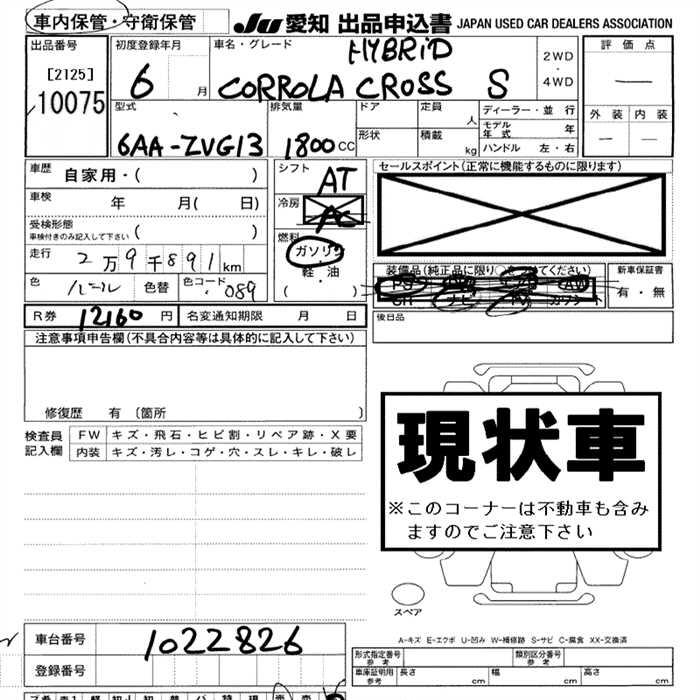 車内保管・守衛保管 JU 愛知 出品申込書 JAPAN USED CAR DEALERS ASSOCIATION
出品番号 初度登録年月 車名・グレード 評価点
[2125] 6 月 HYBRID 2WD
10075 COROLLA CROSS S ・
4WD
外装 内装
型式 排気量 ドア 定員 人 ディーラー・並行
モデル年式 年
6AA-ZVG13 1800 CC 形状 積載 kg ハンドル 左・右
車歴 自家用・( ) シフト AT セールスポイント(正常に機能するものに限ります)
車検 年 月( 日) 冷房 AC
受検形態
車検付きのみ記入して下さい ( ) 燃料
走行 2万9千891km ガソリン
軽・油
( ) 装備品(純正品に限り○をつけてください) 新車保証書
色 パール 色替 色コード 089 PS AW 有・無
ナビ TV
R券 12160 円 名変通知期限 月 日 後日品
注意事項申告欄(不具合内容等は具体的に記入して下さい)
修復歴 有 〔箇所 〕
検査員記入欄 FW キズ・飛石・ヒビ割・リペア跡・X要
内装 キズ・汚レ・コゲ・穴・スレ・キレ・破レ
現状車
※このコーナーは不動車も含み
ますのでご注意下さい
スペア
A-キズ E-エクボ U-凹み W-補修跡 S-サビ C-腐食 XX-交換済
車台番号 1022826
登録番号
形式指定番号 参考 類別区分番号 参考
車庫証明用 参考 長さ cm 幅 cm 高さ cm